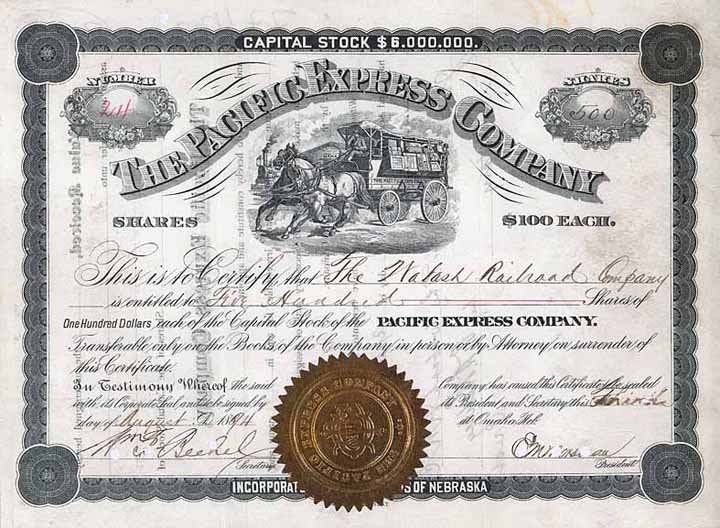 CAPITAL STOCK $6.000.000.
NUMBER
24
SHARES
500
THE PACIFIC EXPRESS COMPANY
SHARES
$100 EACH.
This is to Certify, that The Wabash Railroad Company
is entitled to Five Hundred Shares of
One Hundred Dollars each of the Capital Stock of the PACIFIC EXPRESS COMPANY.
Transferable only on the Books of the Company in person or by Attorney on surrender of
this Certificate.
In Testimony Whereof the said Company has caused this Certificate to be sealed
with its Corporate Seal and to be signed by its President, and Secretary this
day of August A.D. 1894 at Omaha Neb.
Secretary
President
INCORPORATE OF NEBRASKA